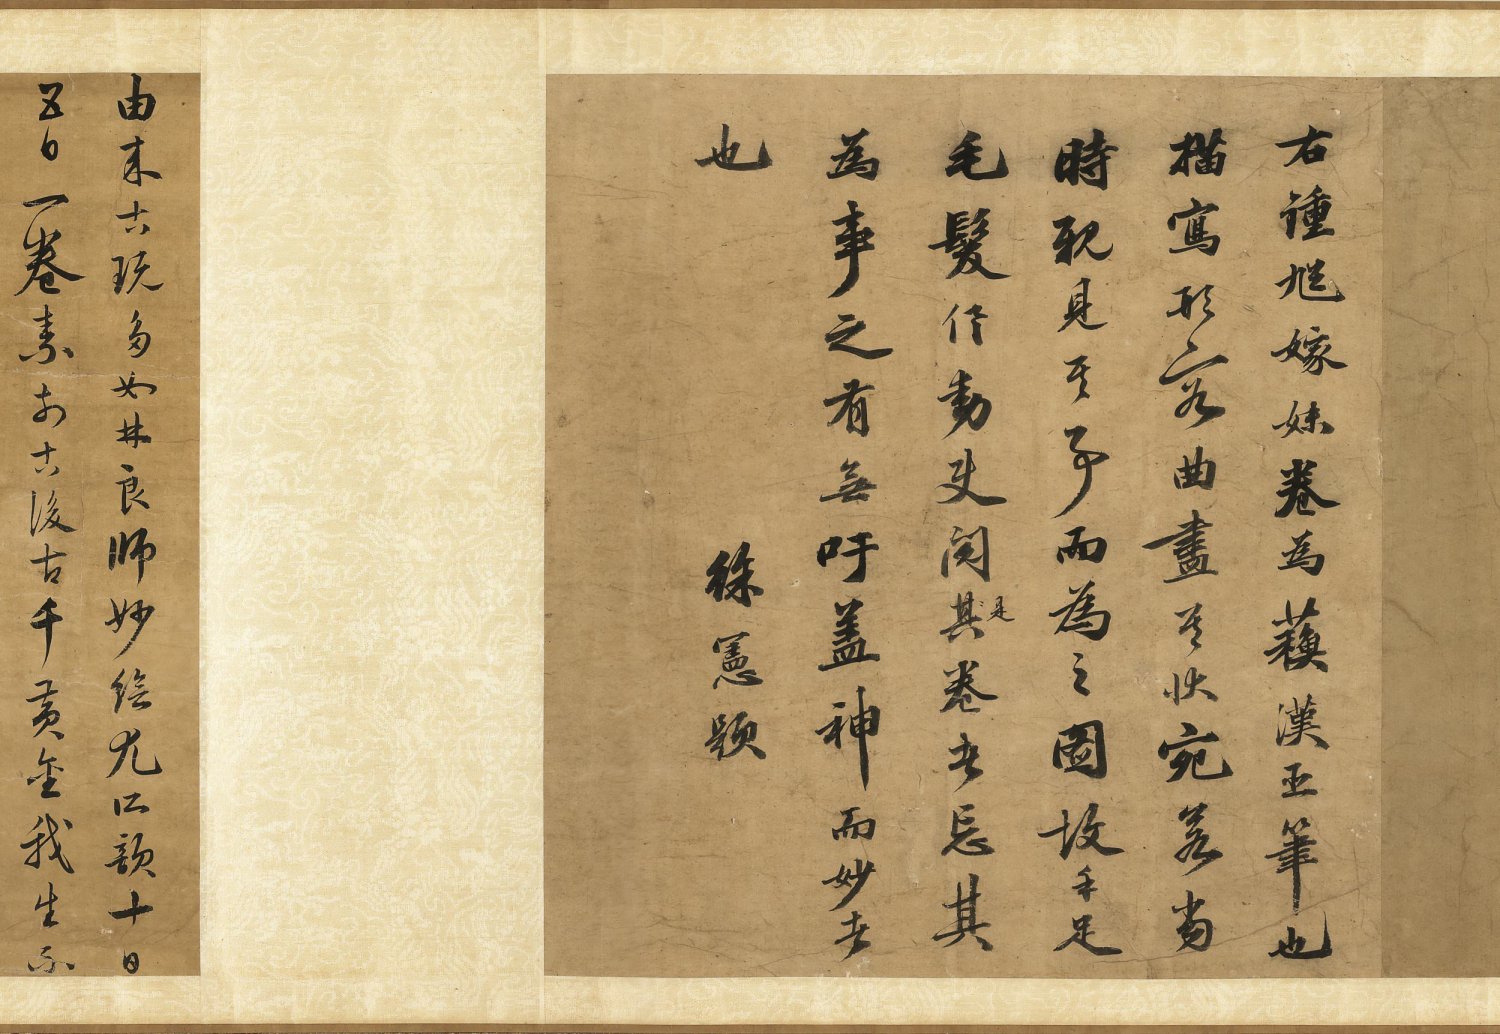 右鍾馗嫁妹卷為蘓漢臣筆也
描寫形容曲盡其狀宛若當
時親見其事而為之圖故手足
毛髮俱動使閱其是卷者忘其
為事之有無吁蓋神而妙者
也
徐憲題
由來古玩多如林良師妙繪尤所歆十日
五日一卷素前古後古千黃金我生不